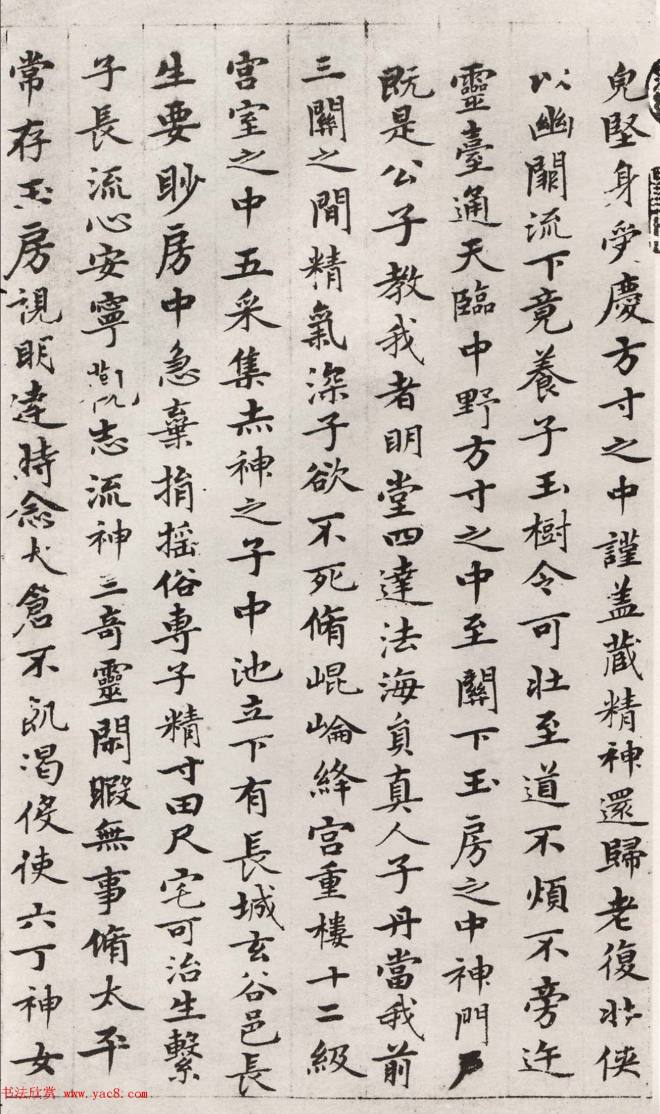 兒堅身受慶方寸之中謹盖藏精神還歸老復壯俠
以幽闕流下竟養子玉樹令可壯至道不煩不旁迕
靈臺通天臨中野方寸之中至關下玉房之中神門戶
既是公子教我者明堂四達法海員真人子丹當我前
三關之間精氣深子欲不死脩崐崘絳宮重樓十二級
宮室之中五采集赤神之子中池立下有長城玄谷邑長
生要眇房中急棄捐搖俗專子精寸田尺宅可治生繫
子長流心安寧觀志流神三奇靈閑暇無事脩太平
常存玉房視明達時念大倉不飢渴役使六丁神女
书法欣赏 www.yac8.com